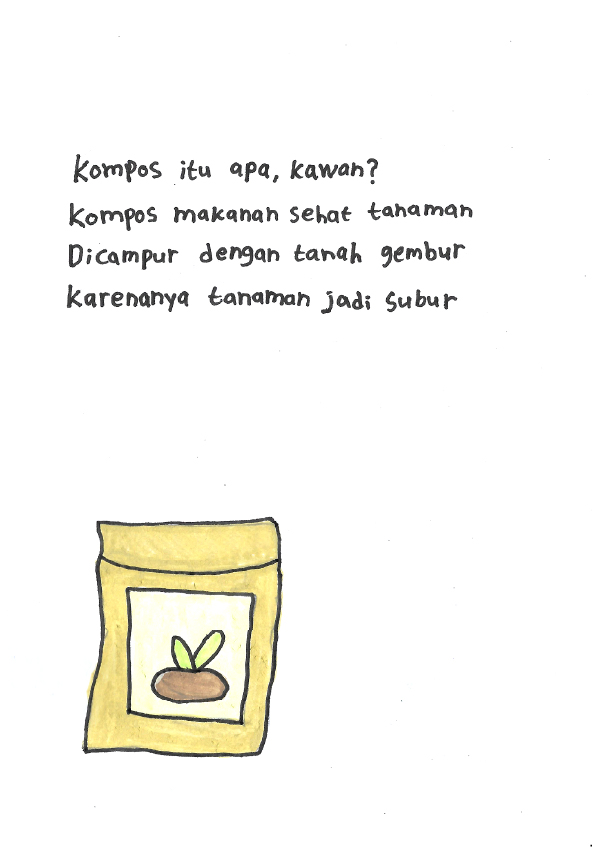 Kompos itu apa, kawan?
Kompos makanan sehat tanaman
Dicampur dengan tanah gembur
Karenanya tanaman jadi subur